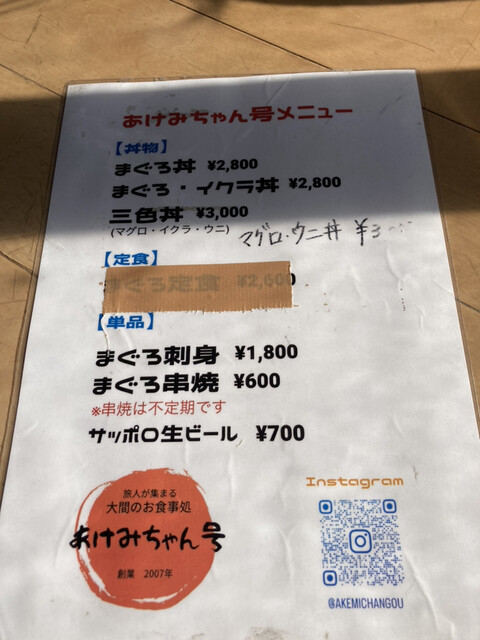 あけみちゃん号メニュー
【丼物】
まぐろ丼 ¥2,800
まぐろ・イクラ丼 ¥2,800
三色丼 ¥3,000
(マグロ・イクラ・ウニ)
マグロ・ウニ丼 ¥3
【定食】
まぐろ定食 ¥2,600
【単品】
まぐろ刺身 ¥1,800
まぐろ串焼 ¥600
※串焼は不定期です
サッポロ生ビール ¥700
旅人が集まる
大間のお食事処
あけみちゃん号
創業 2007年
Instagram
@AKEMICHANGOU